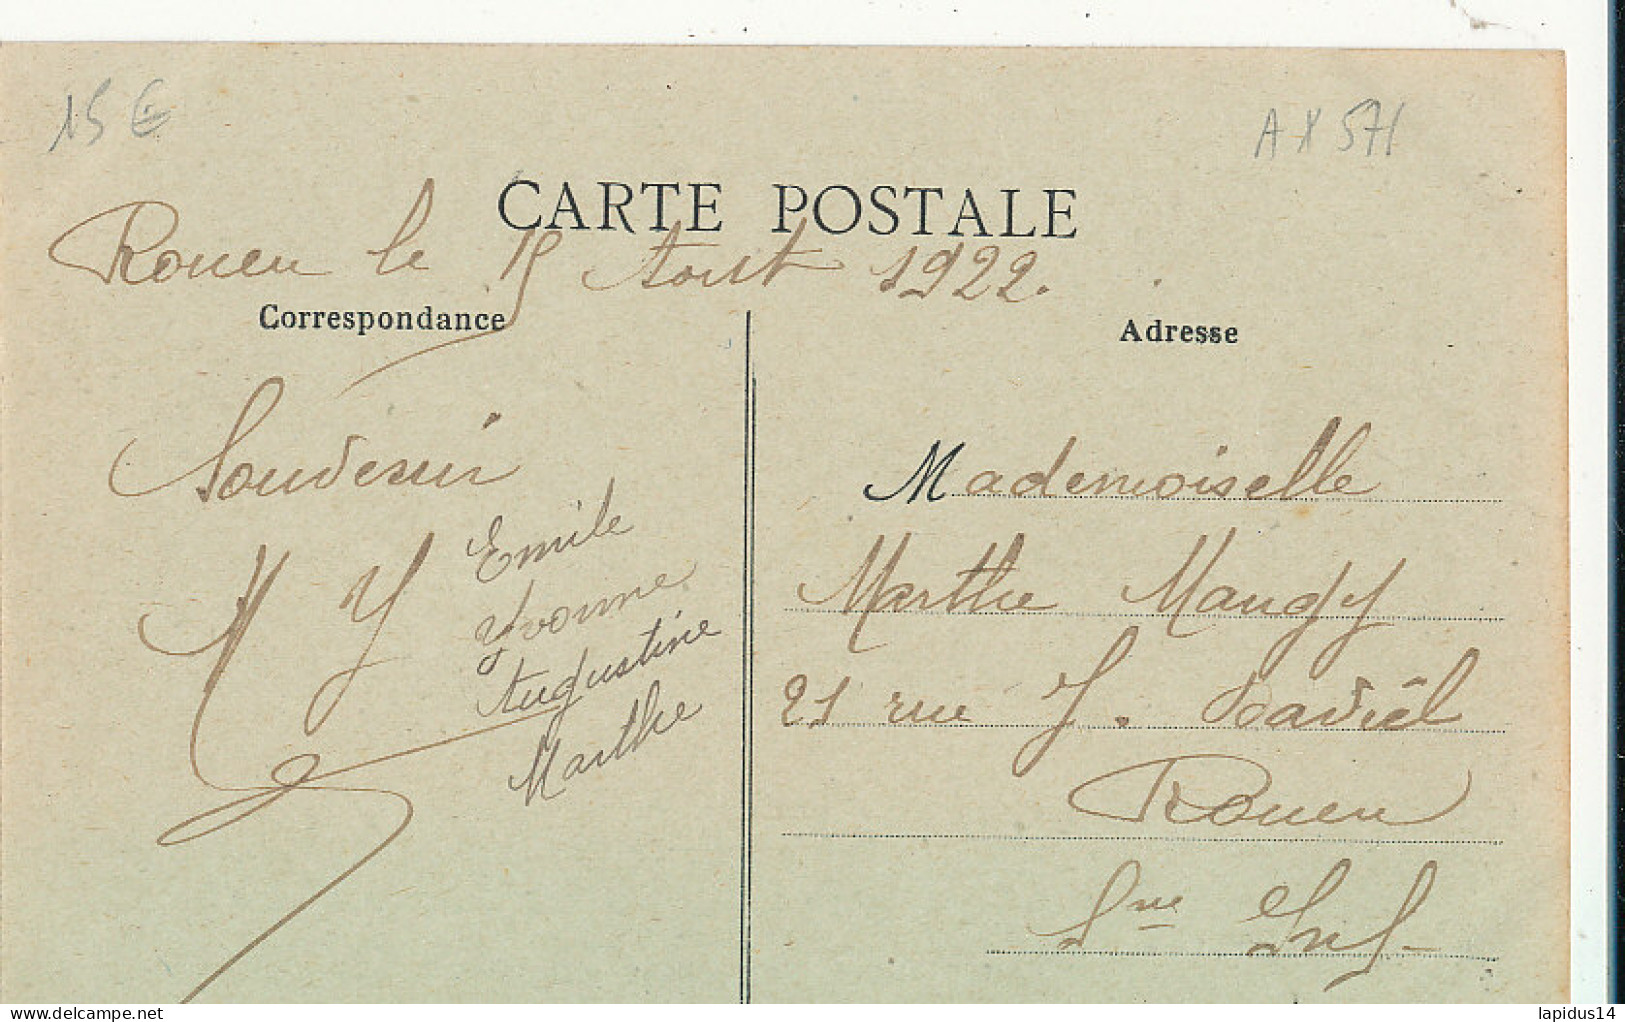 15 €
AX 571
CARTE POSTALE
Rouen le 15 Aout 1922.
Correspondance
Adresse
Souvenir
Emile
Yvonne
Augustine
Marthe
Mademoiselle
Marthe Maugy
21 rue J. Daviël
Rouen
Sne Inf
delcampe.net
lapidus14